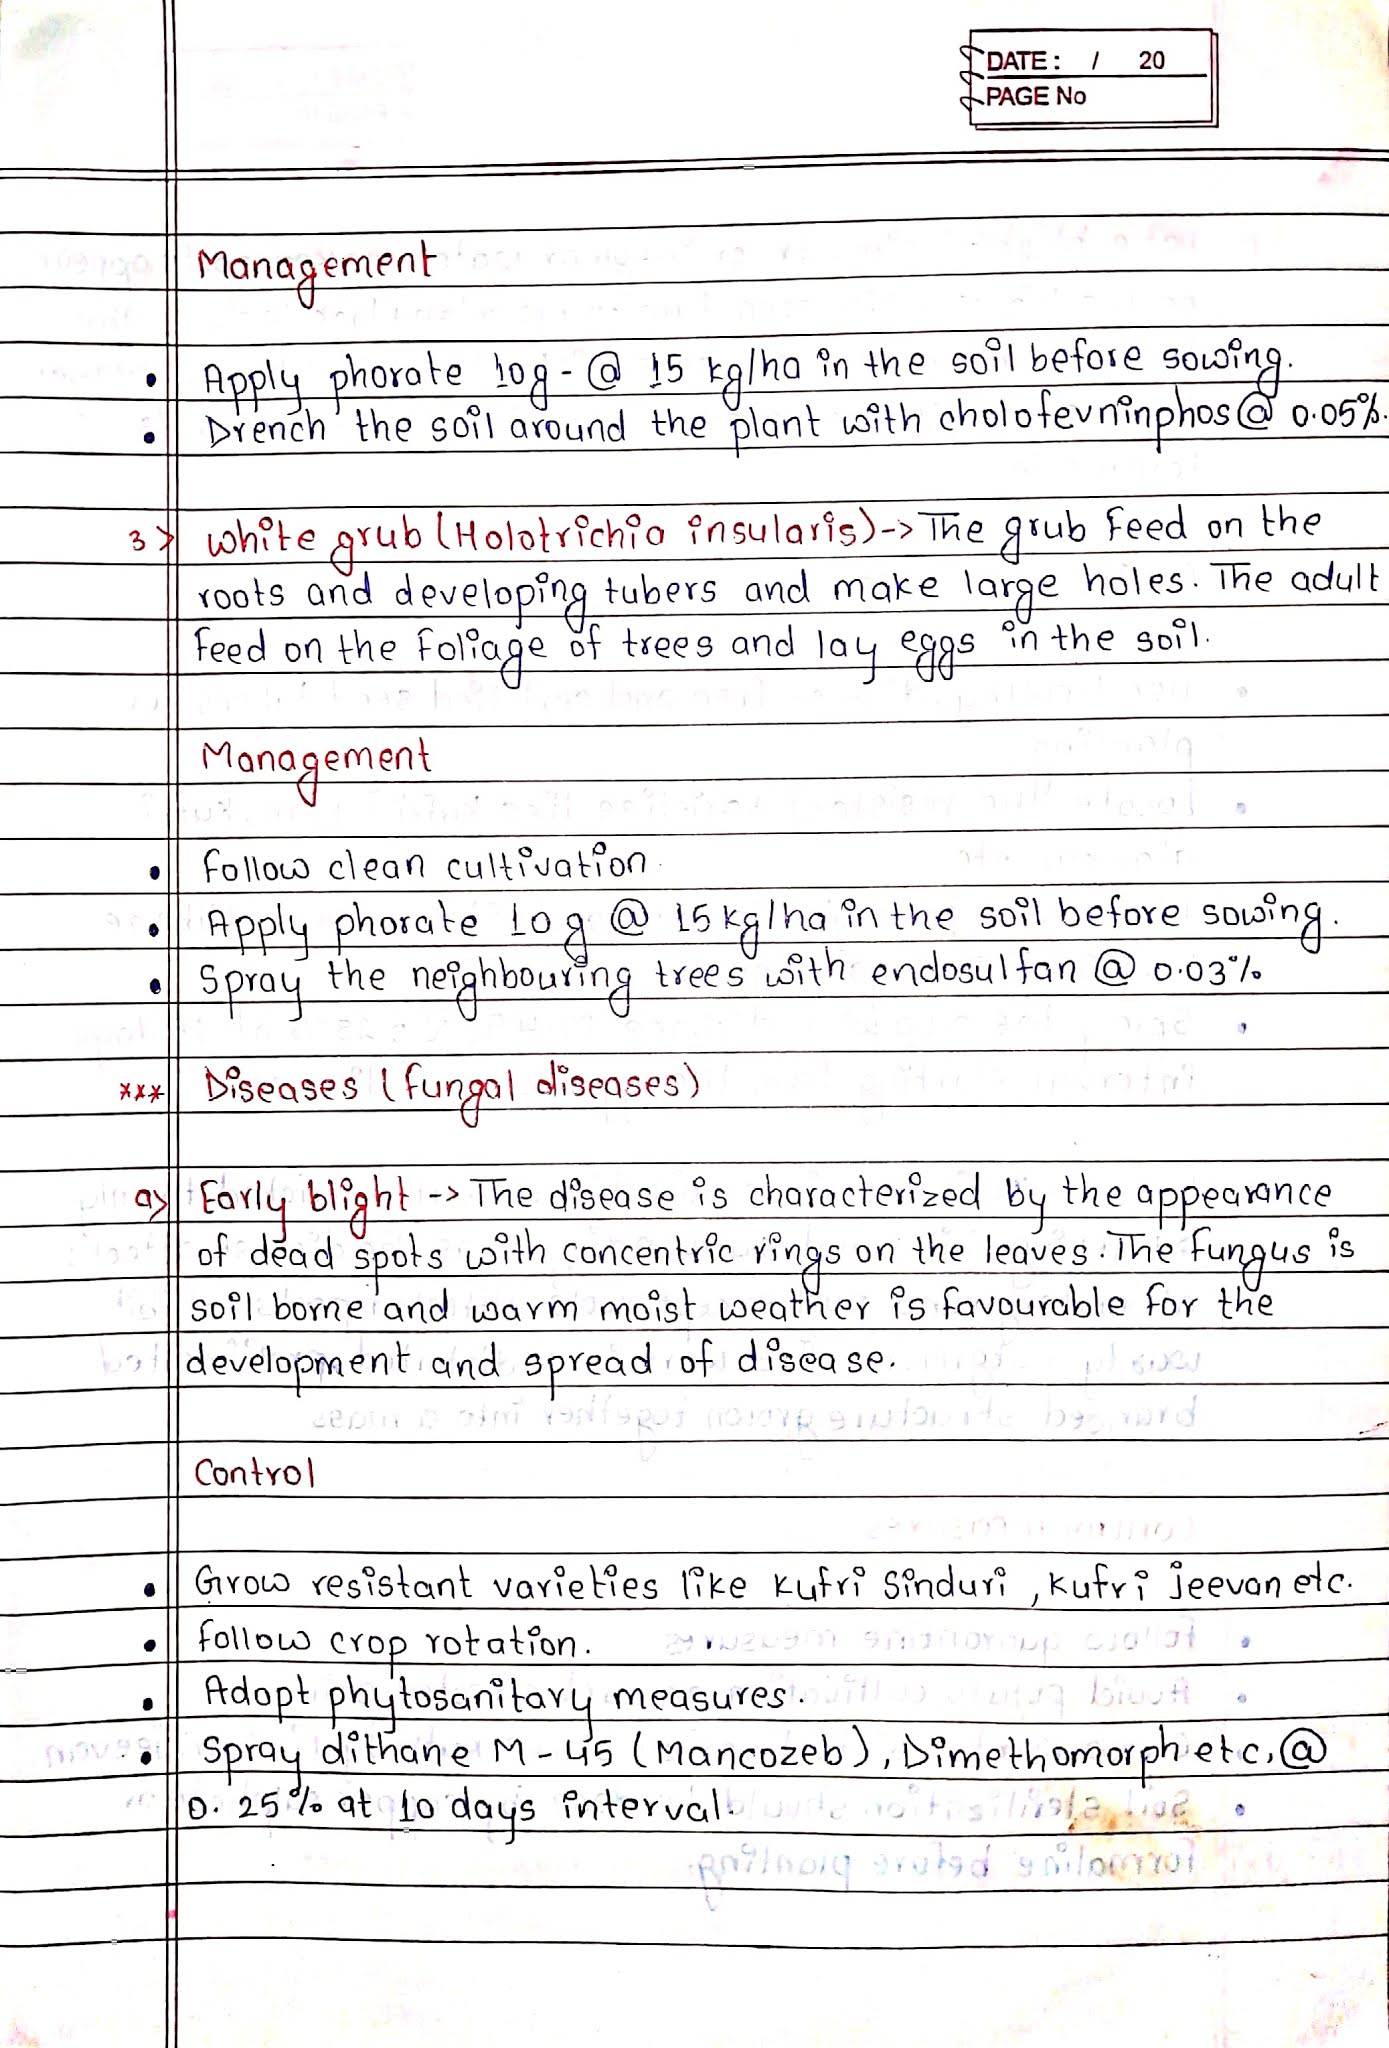 DATE: / 20
PAGE No
Management
• Apply phorate 10g - @ 15 kg/ha in the soil before sowing.
• Drench the soil around the plant with cholofevninphos @ 0.05%.
3> White grub (Holotrichia insularis) -> The grub feed on the
roots and developing tubers and make large holes. The adult
feed on the foliage of trees and lay eggs in the soil.
Management
• follow clean cultivation.
• Apply phorate 10 g @ 15 kg/ha in the soil before sowing.
• Spray the neighbouring trees with endosulfan @ 0.03%
*** Diseases (fungal diseases)
a> Early blight -> The disease is characterized by the appearance
of dead spots with concentric rings on the leaves. The fungus is
soil borne and warm moist weather is favourable for the
development and spread of disease.
Control
• Grow resistant varieties like Kufri Sinduri, Kufri jeevan etc.
• follow crop rotation.
• Adopt phytosanitary measures.
• Spray dithane M-45 (Mancozeb), Dimethomorph etc, @
0.25% at 10 days interval.